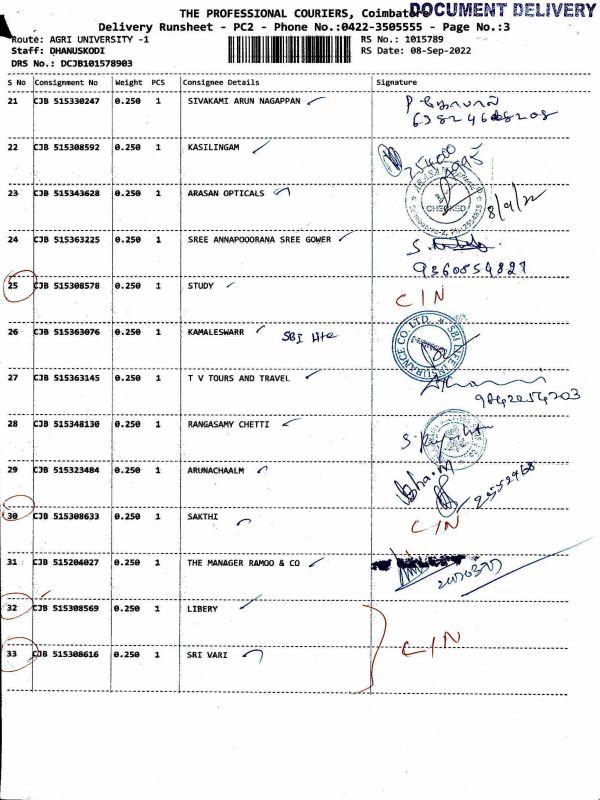 THE PROFESSIONAL COURIERS, Coimbatore
DOCUMENT DELIVERY
Delivery Runsheet - PC2 - Phone No.:0422-3505555 - Page No.:3
Route: AGRI UNIVERSITY -1 RS No.: 1015789
Staff: DHANUSKODI RS Date: 08-Sep-2022
DRS No.: DCJB101578903
S No Consignment No Weight PCS Consignee Details Signature
21 CJB 515330247 0.250 1 SIVAKAMI ARUN NAGAPPAN
22 CJB 515308592 0.250 1 KASILINGAM
23 CJB 515343628 0.250 1 ARASAN OPTICALS CHECKED 8/9/22
24 CJB 515363225 0.250 1 SREE ANNAPOOORANA SREE GOWER
9360854827
25 CJB 515308578 0.250 1 STUDY C/N
26 CJB 515363076 0.250 1 KAMALESWARR SBI life
27 CJB 515363145 0.250 1 T V TOURS AND TRAVEL
9842054203
28 CJB 515348130 0.250 1 RANGASAMY CHETTI
29 CJB 515323484 0.250 1 ARUNACHAALM 2552468
30 CJB 515308633 0.250 1 SAKTHI C/N
31 CJB 515204027 0.250 1 THE MANAGER RAMOO & CO
32 CJB 515308569 0.250 1 LIBERY
C/N
33 CJB 515308616 0.250 1 SRI VARI